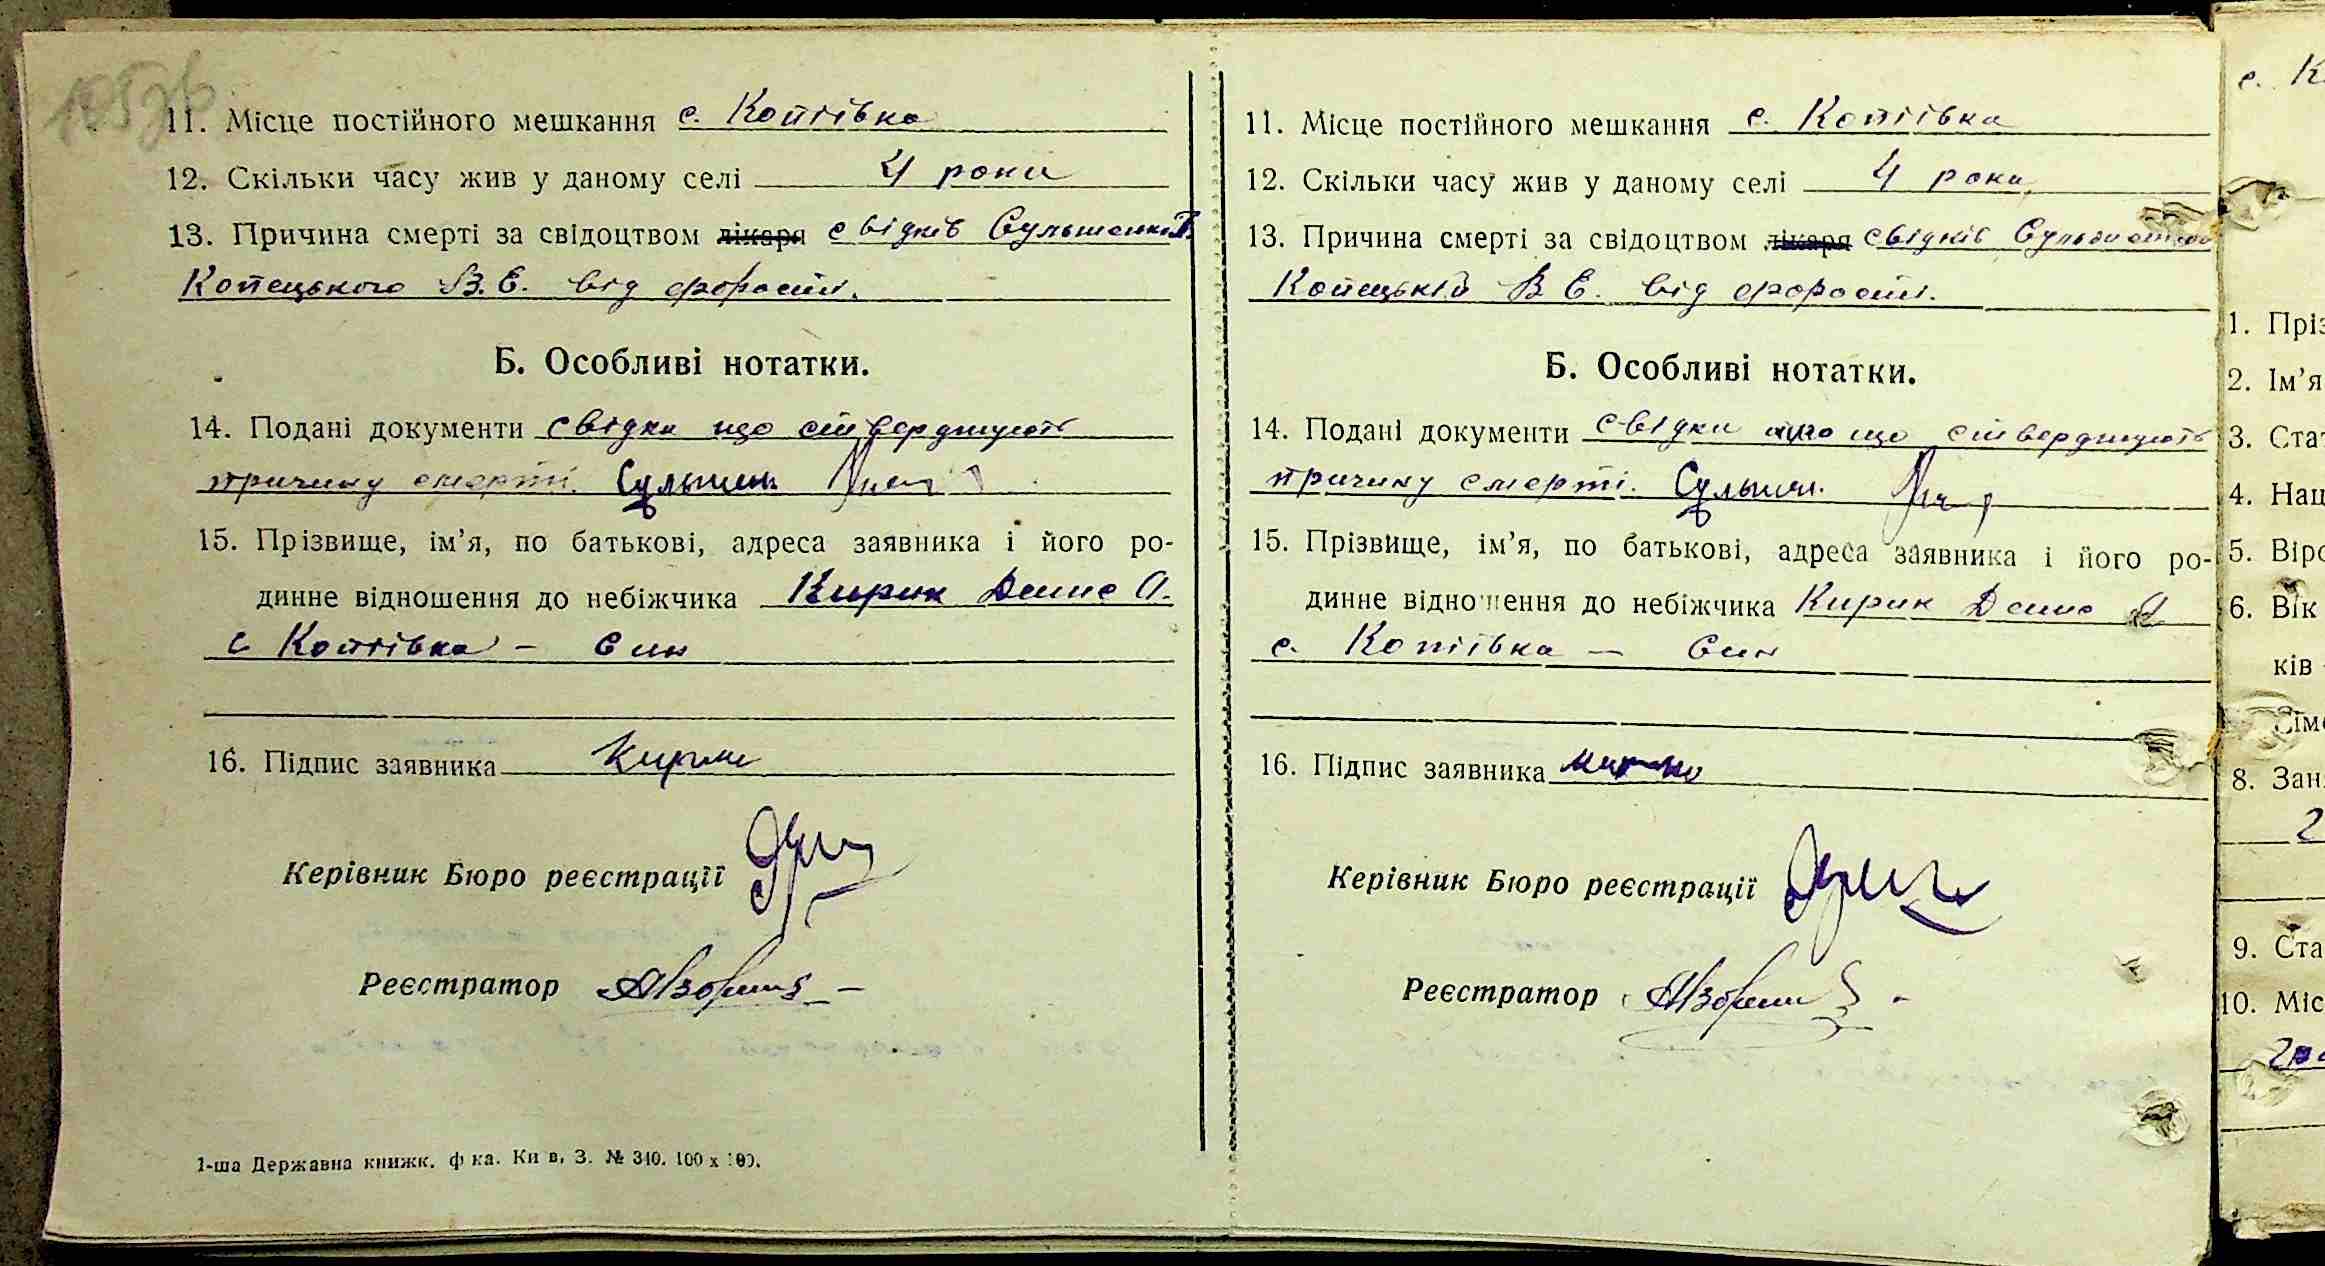 11. Місце постійного мешкання с. Копіївка
12. Скільки часу жив у даному селі 4 роки
13. Причина смерті за свідоцтвом лікаря свідків
Копецького В. Е. від
Б. Особливі нотатки.
14. Подані документи свідки що стверджують
причину смерті.
15. Прізвище, ім’я, по батькові, адреса заявника і його ро-
динне відношення до небіжчика Кирик Денис
с Копіївка – син
16. Підпис заявника
Керівник Бюро реєстрації
Реєстратор
1-ша Державна книжк. ф ка. Ки в, З. № 340. 100 х 100.
11. Місце постійного мешкання с. Копіївка
12. Скільки часу жив у даному селі 4 роки
13. Причина смерті за свідоцтвом лікаря свідків
Копецький В Е. від
Б. Особливі нотатки.
14. Подані документи свідки що стверджують
причину смерті.
15. Прізвище, ім’я, по батькові, адреса заявника і його ро-
динне відношення до небіжчика Кирик Денис
с. Копіївка – син
16. Підпис заявника
Керівник Бюро реєстрації
Реєстратор
с. К
1. Пріз
2. Ім’я
3. Стат
4. Нац
5. Віро
6. Вік
ків
Сім
8. Зан
9. Ста
10. Міс